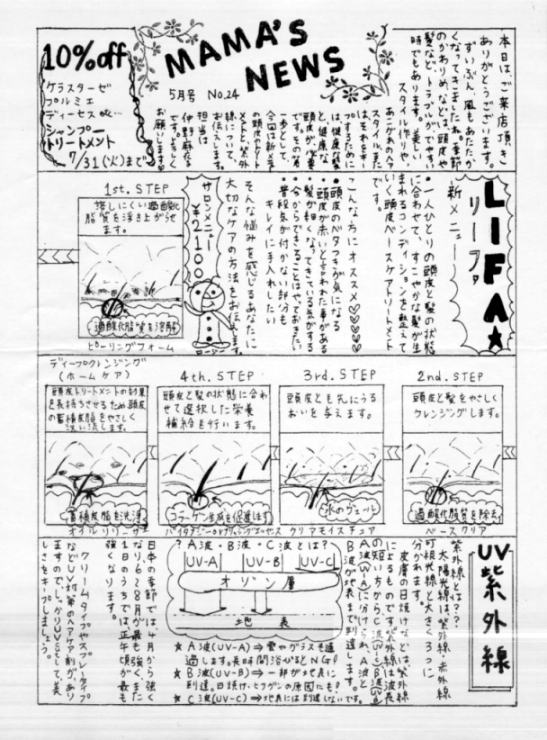 MAMA'S
NEWS
5月号 No.24
10%off
ケラスターゼ
プルミエ
ディーセス etc…
シャンプー
トリートメント
7/31(火)まで
本日は、ご来店頂き
ありがとうございます。
ずいぶん、風もあたたか
くなってきましたね。季節
のかわりめ、などは、頭皮や
髪など、トラブルがでやすい
時でもあります。美しい
スタイル作りや、
あこがれのヘア
スタイル、また
LIFA★
リーファ
新メニュー
・一人ひとりの頭皮と髪の状態
に合わせて、すこやかな髪が生
まれるコンディションを整えて
いく頭皮ベースケアトリートメント
こんな方にオススメ♡♡♡♡♡
・頭皮のベタつきが気になる
・頭皮が赤いと言われた事がある
・髪が細くなってきている気がする
・今からできることはやっておきたい
・普段気が付かない部分も
キレイに手入れしたい
そんな悩みを感じるあなたに
大切なケアの方法をお伝えします。
サロンメニュー
¥2100
1st. STEP
落しにくい過酸化
脂質を浮き上がらせ
ます。
過酸化脂質を溶解
ピーリングフォーム
2nd. STEP
頭皮と髪をやさしく
クレンジングします。
過酸化脂質を除去
ベースクリア
3rd. STEP
頭皮とも先にうる
おいを与えます。
水のヴェール
クリアモイスチュア
4th. STEP
頭皮と髪の状態に合わ
せて選択した栄養
補給を行います。
コラーゲン生成を促進します
ディープクレンジング
(ホームケア)
頭皮トリートメントの効果
を長持ちさせるため頭皮
の蓄積皮脂をやさしく
洗い流します。
蓄積皮脂を洗浄
オイルリリーサー
UV紫外線
紫外線とは??
太陽光線は、紫外線・赤外線
可視光線と大きく3つに
分かれます。
皮膚の日焼けなどは、紫外線
によるものです。紫外線は波長
の短い方からC波(UV-C)B波(UV-B)
A波(UV-A)に分けられ、A波と
B波が地表まで到達します。
?A波・B波・C波とは?
UV-A UV-B UV-C
オゾン層
地表
★A波(UV-A)⇒雲やガラスも通
過します。長時間浴びるとNG!
★B波(UV-B)⇒一部が地表に
到達。日焼け・ヒフガンの原因にも?
★C波(UV-C)⇒地表には到達しないです。
日本の季節では、4月から強く
なり6~8月が最も強く、また
1日のうちでは、正午頃が最も
強くなります。
クリームタイプやスプレータイプ
などUV対策のヘアケア剤があり
ますので、しっかりUVをして、美
しさをキープしましょう。